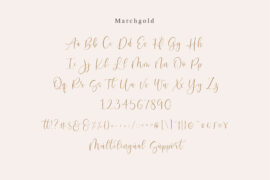 Matchgold
Aa Bb Cc Dd Ee Ff Gg Hh
Ii Jj Kk Ll Mm Nn Oo Pp
Qq Rr Ss Tt Uu Vv Ww Xx Yy Zz
1234567890
Multilingual Support